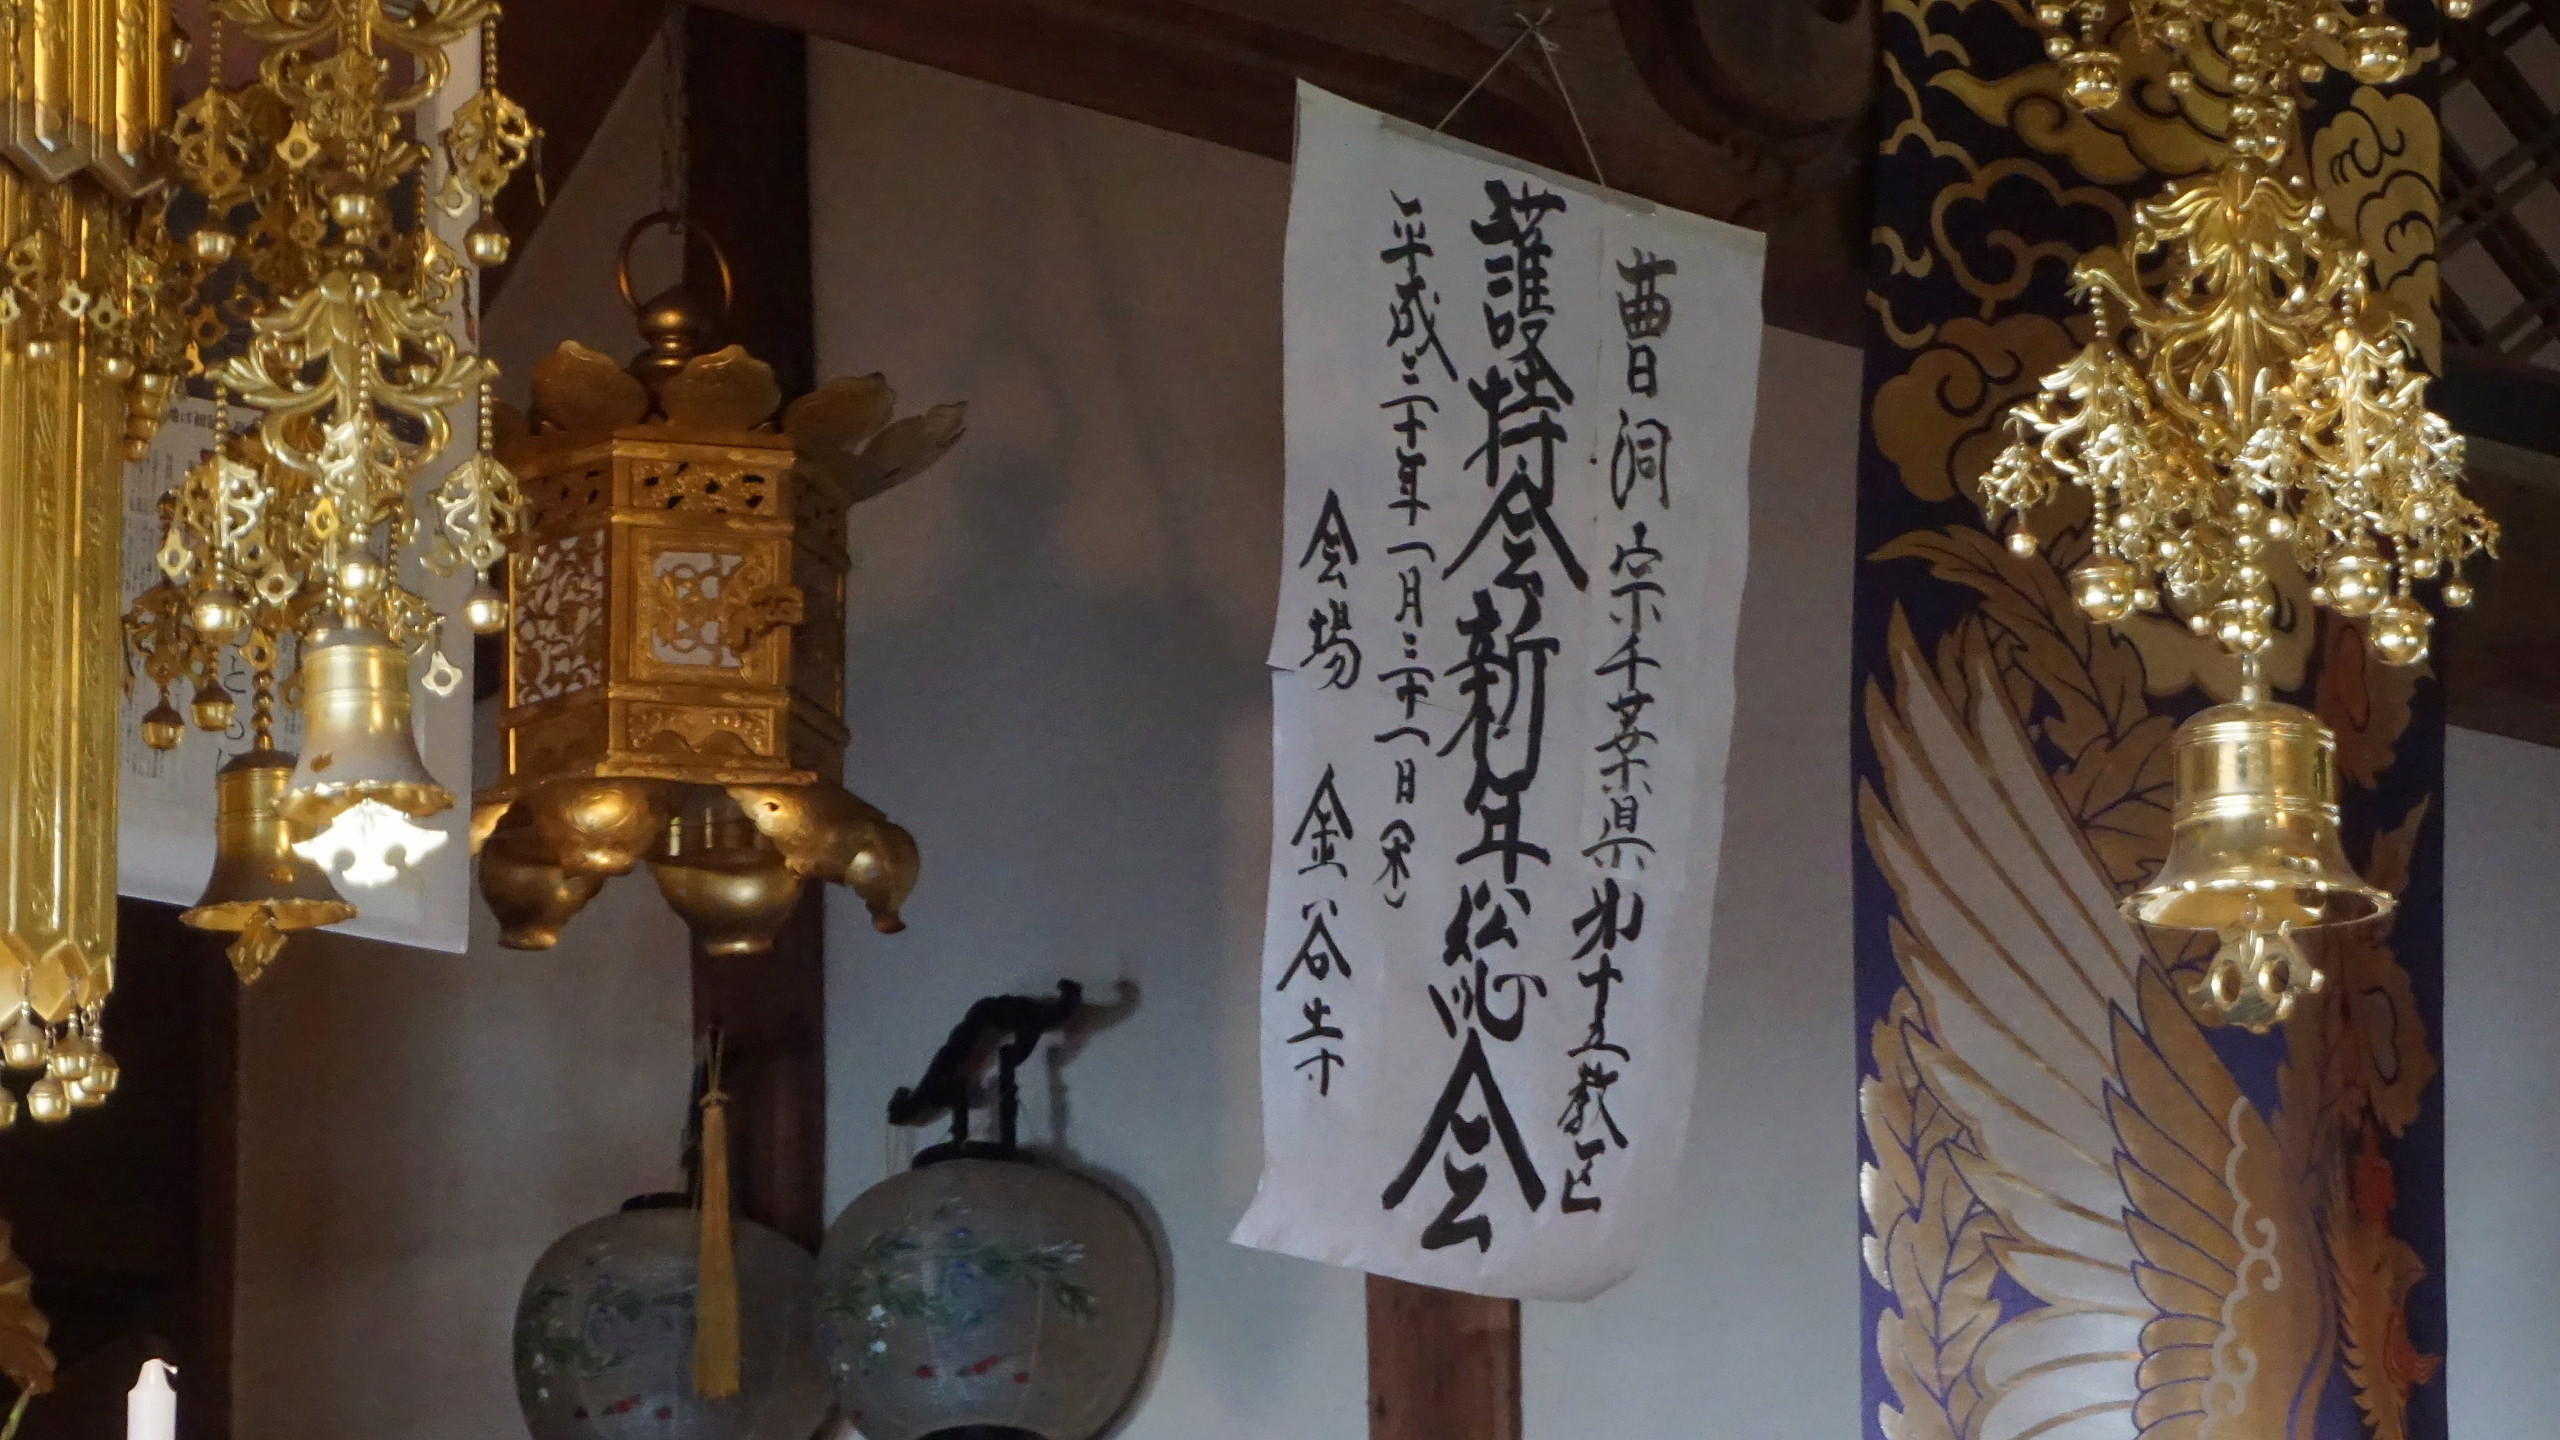 曹洞宗千葉県㐧十五教区
護持会新年総会
平成二十年一月三十一日(木)
会場 金谷寺
とも